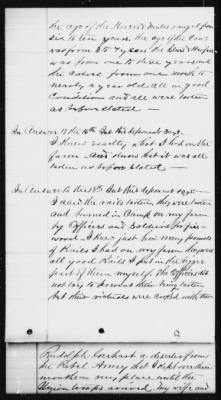 the age of the Horses & Mules ranged from
six to ten years, the age of the Cows
was from 3 to 7 years the
was from one to three years and
the Calves from one month to
nearly a year old. all in good
Condition and all were taken
as before stated —
In Answer to the 16th Int this deponent says.
I Knew exactly what I had on the
farm and know that it was all
taken as before stated —
In Answer to the 18th Int this deponent says.
I saw the rails taken, they were taken
and burned in Camp on my farm
by Officers and Soldiers for fire
wood – I Knew just how many panels
of Rails I had on my farm, they were
all good Rails I put in the bigger
part of them myself. The Officers did
not try to prevent them being taken
but their victuals were cooked with them
Rudolph Earhart a deserter from
the Rebel Army
my place until the
Union troops arrived, my wife and